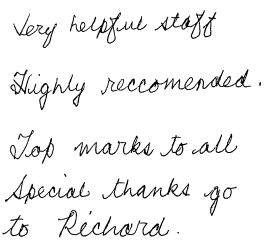 Very helpful staff
Highly reccomended.
Top marks to all
Special thanks go
to Richard.